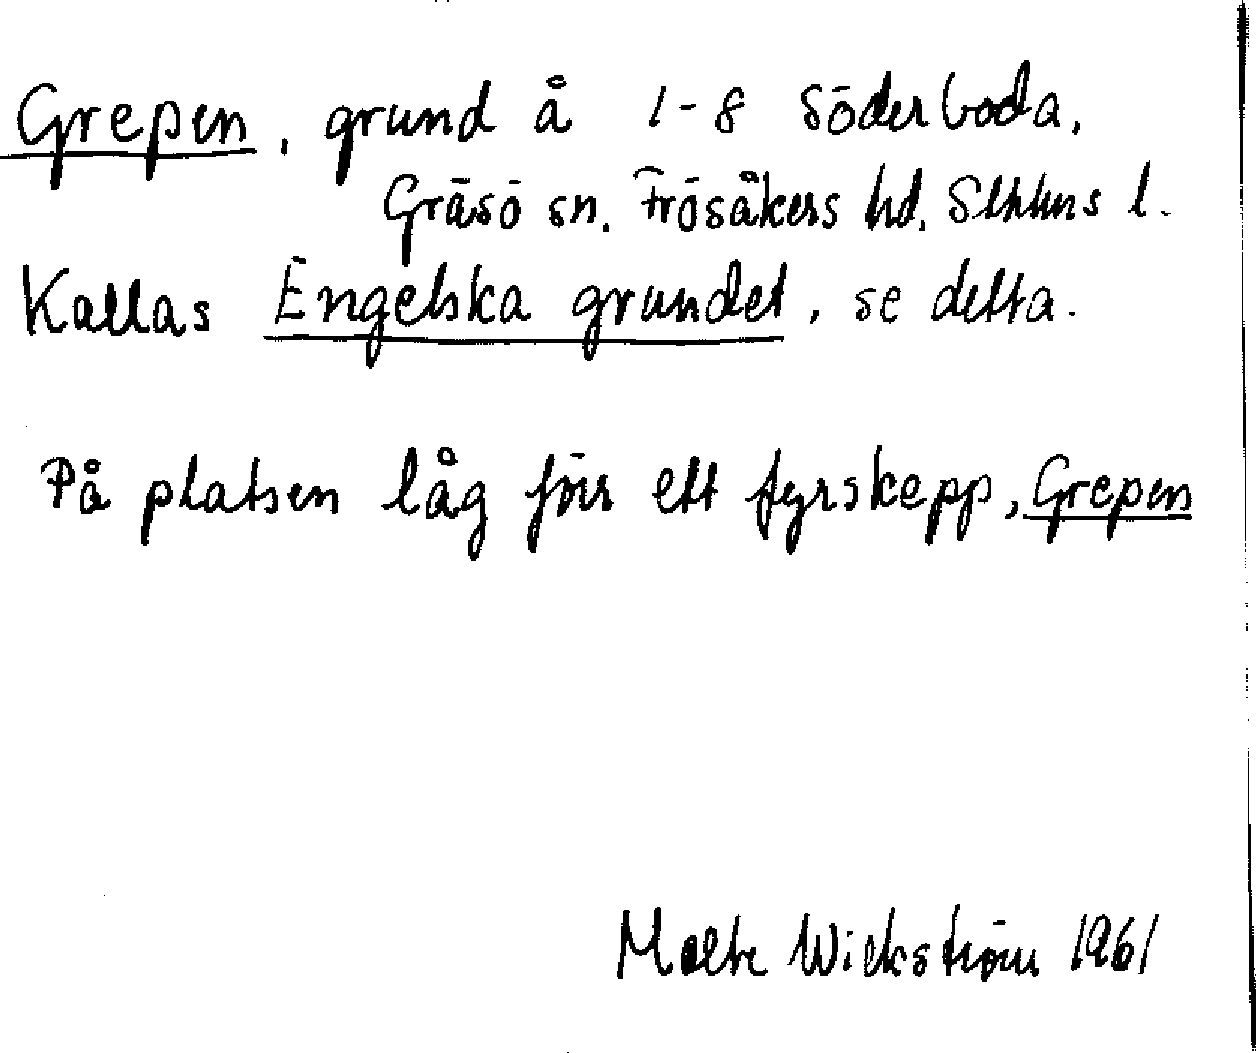 Grepen, grund å 1-8 Söderboda,
Gräsö sn. Frösåkers hd. Sthlms l.
Kallas Engelska grundet, se detta.
På platsen låg förr ett fyrskepp, Grepen
Malte Wickström 1961